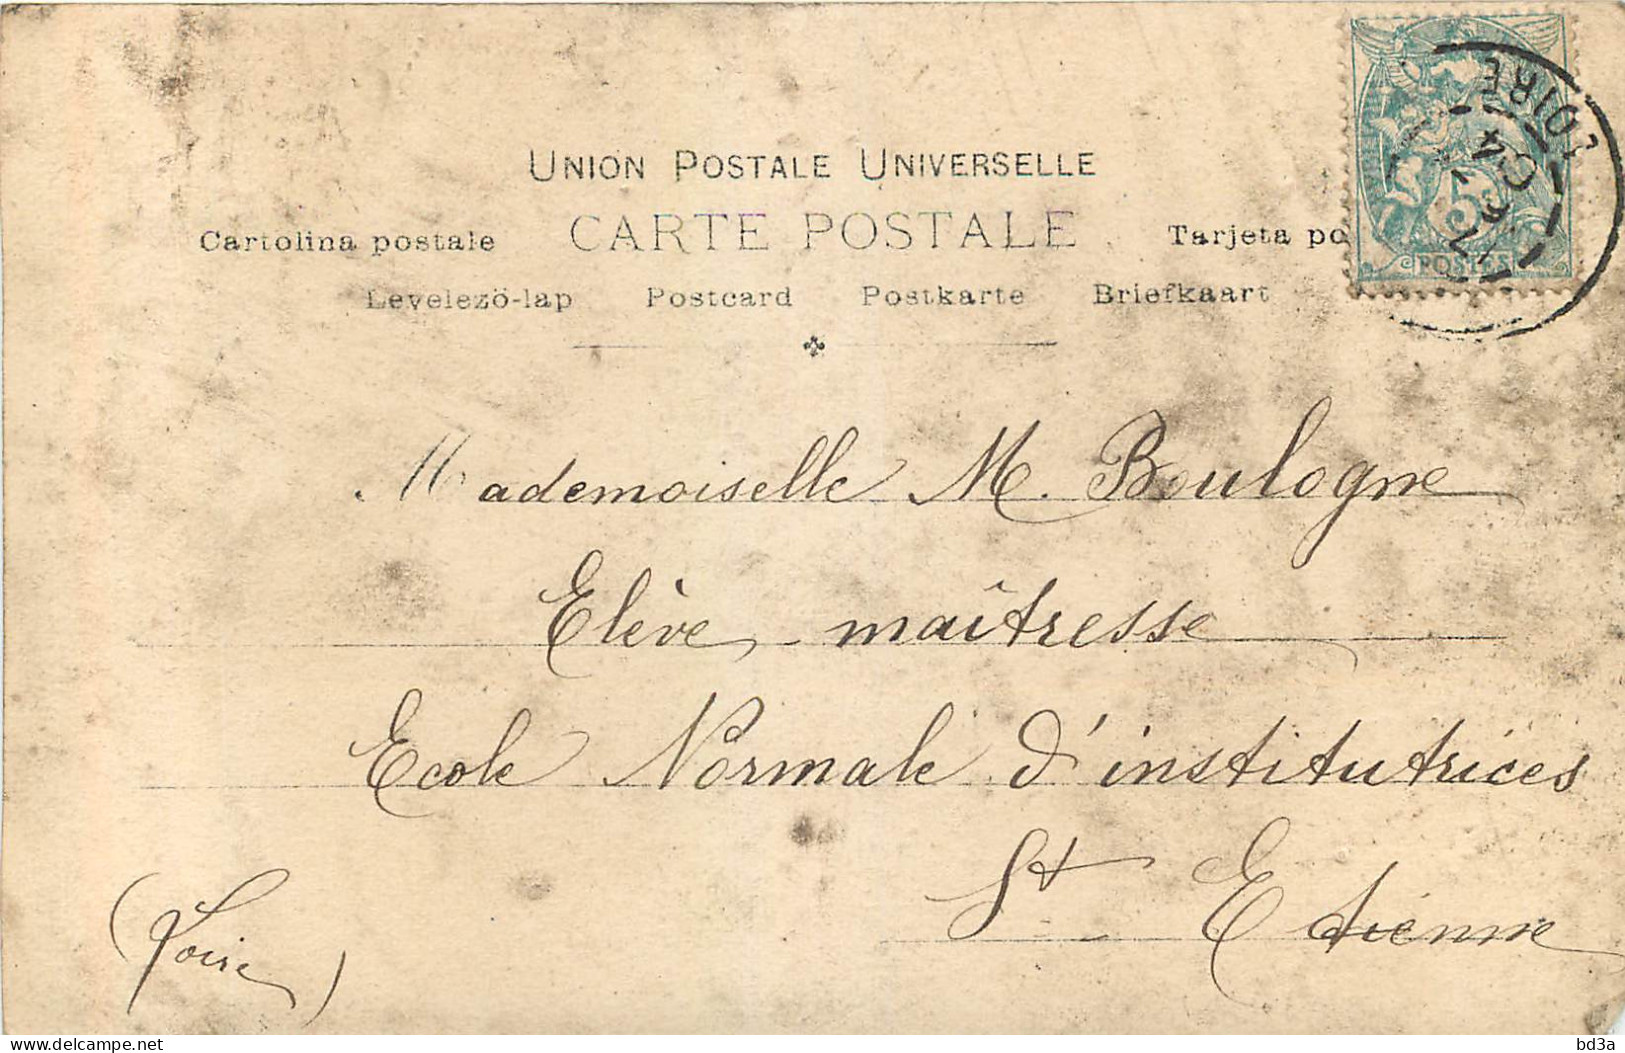 UNION POSTALE UNIVERSELLE
CARTE POSTALE
Cartolina postale Tarjeta po
Levelezö-lap Postcard Postkarte Briefkaart
5
POSTES
LOIRE
04
Mademoiselle M. Boulogne
Elève maîtresse
Ecole Normale d'institutrices
St Etienne
(Loire)
bd3a